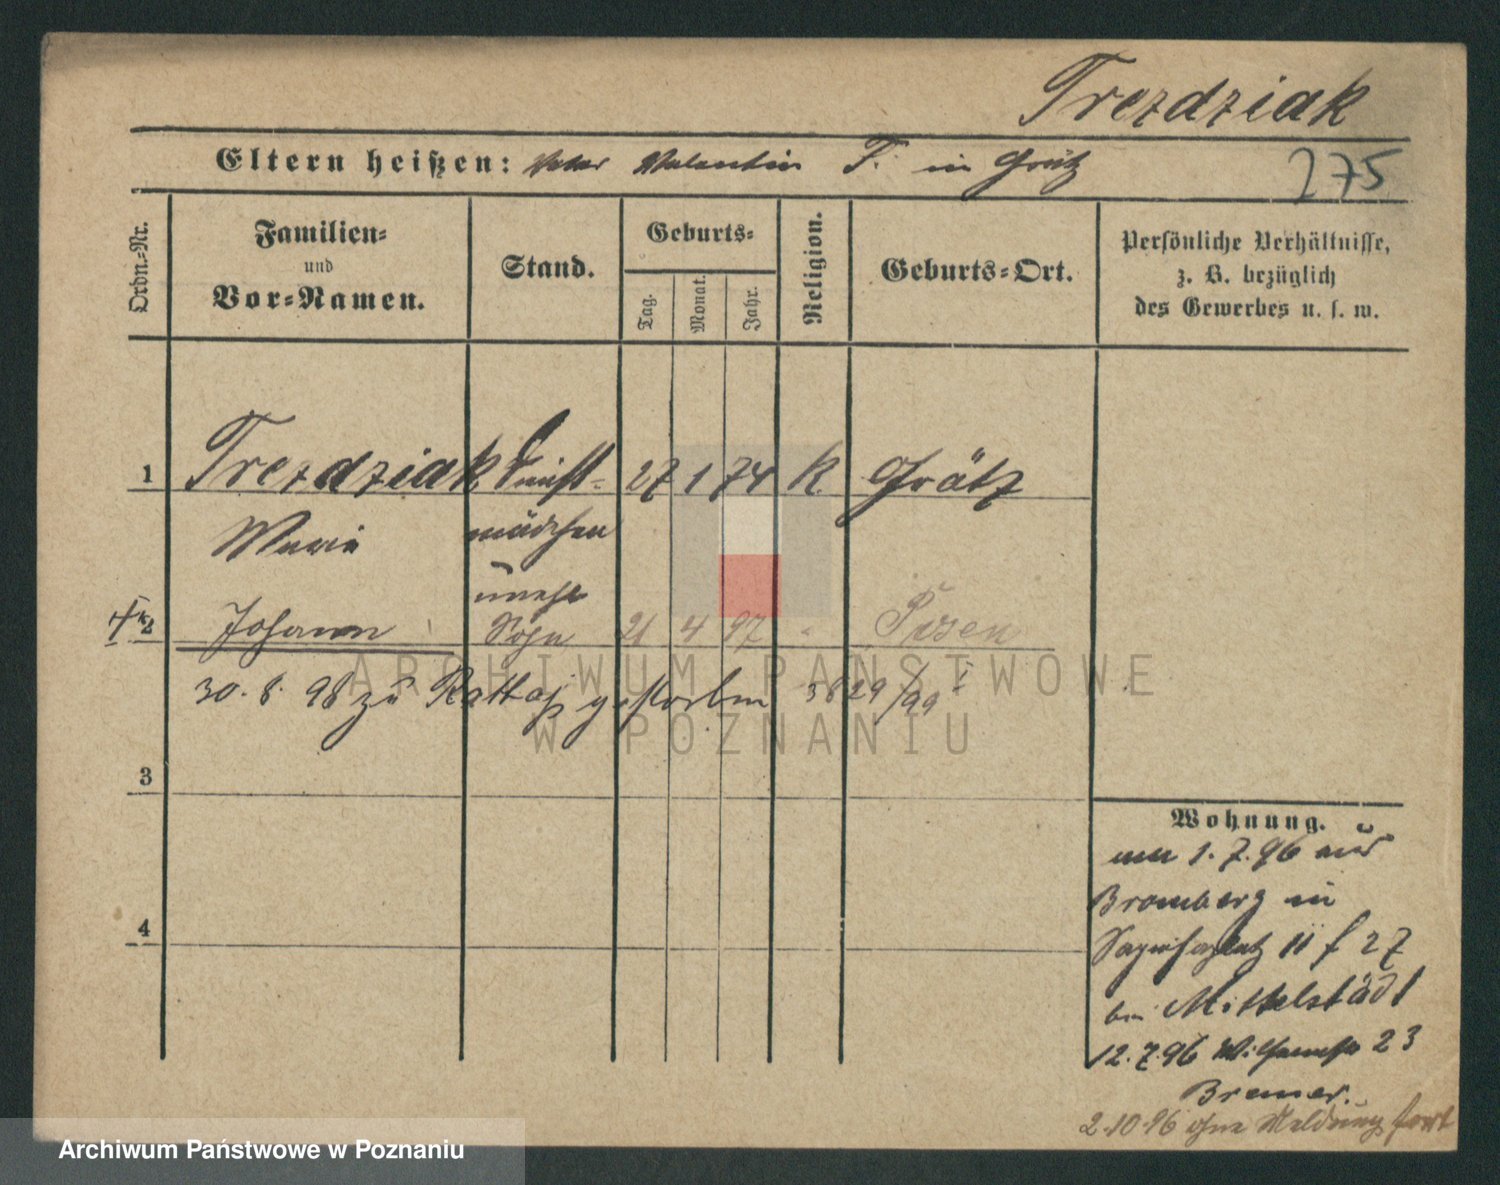 Trezdziak
Eltern heißen: Vater Valentin T. in Grätz
275
Ordn.-Nr.
Familien-
und
Vor-Namen.
Stand.
Geburts-
Tag.
Monat.
Jahr.
Religion.
Geburts-Ort.
Persönliche Verhältnisse,
z. B. bezüglich
des Gewerbes u. s. w.
1 Trezdziak Dienst- 27 1 74 K. Grätz
Marie mädchen
unehl
2 Johann Sohn 21 4 97 " Posen
30. 8. 98 zu Rattaj gestorben 3829/99 I
3
4
Wohnung.
am 1. 7. 96 aus
Bromberg in
Sapiehaplatz 11 f 27
bei Mittelstädt
12. 7. 96 Wilhelmstr 23
Bremer.
2.10.96 ohne Meldung fort
ARCHIWUM PAŃSTWOWE
W POZNANIU
Archiwum Państwowe w Poznaniu